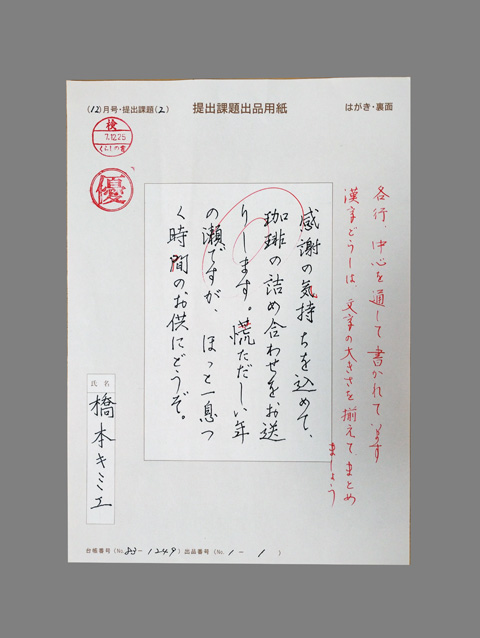 (12)月号・提出課題(2)
提出課題出品用紙
はがき・裏面
検
7.12.25
くらしの書
優
各行、中心を通して書かれています
漢字どうしは、文字の大きさを揃えてまとめ
ましょう
感謝の気持ちを込めて、
珈琲の詰め合わせをお送
りします。慌ただしい年
の瀬ですが、ほっと一息つ
く時間のお供にどうぞ。
氏名
橋本キミエ
台帳番号(No. 33-1249)出品番号(No. 1-1)